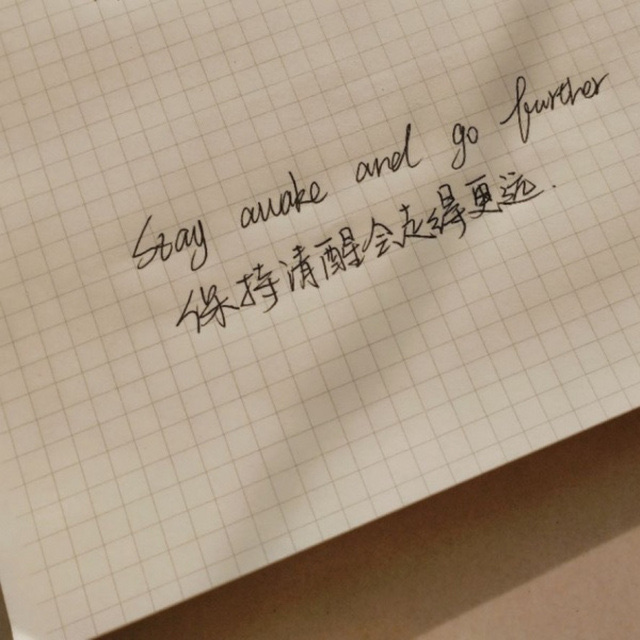 Stay awake and go further
保持清醒会走得更远.